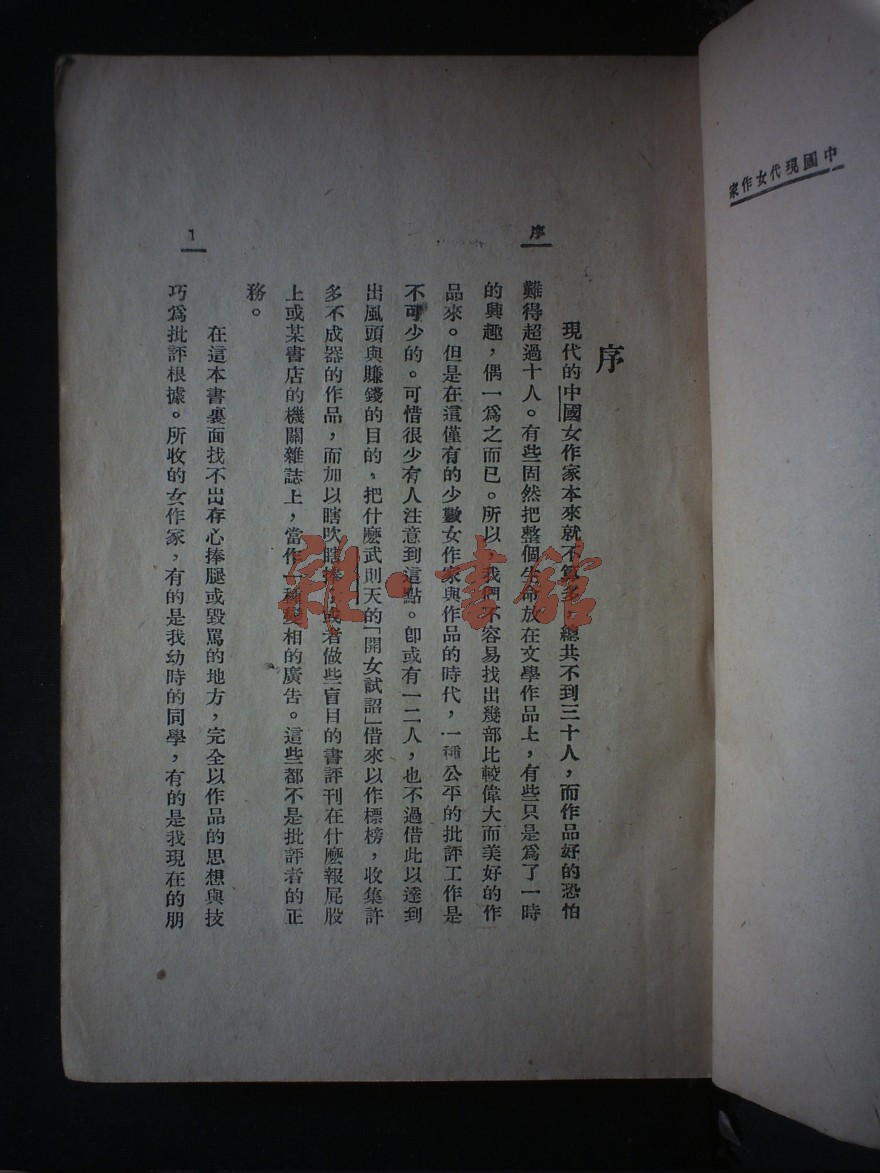 中國現代女作家
序
序
現代的中國女作家本來就不算多，總共不到三十人，而作品好的恐怕
難得超過十人。有些固然把整個生命放在文學作品上，有些只是爲了一時
的興趣，偶一爲之而已。所以，我們不容易找出幾部比較偉大而美好的作
品來。但是在這僅有的少數女作家與作品的時代，一種公平的批評工作是
不可少的。可惜很少有人注意到這點。卽或有一二人，也不過借此以達到
出風頭與賺錢的目的，把什麽武則天的「開女試詔」借來以作標榜，收集許
多不成器的作品，而加以瞎吹瞎捧，或者做些盲目的書評刊在什麽報屁股
上或某書店的機關雜誌上，當作一種變相的廣告。這些都不是批評者的正
務。
在這本書裏面找不出存心捧腿或毀駡的地方，完全以作品的思想與技
巧爲批評根據。所收的女作家，有的是我幼時的同學，有的是我現在的朋
1
雜·書館